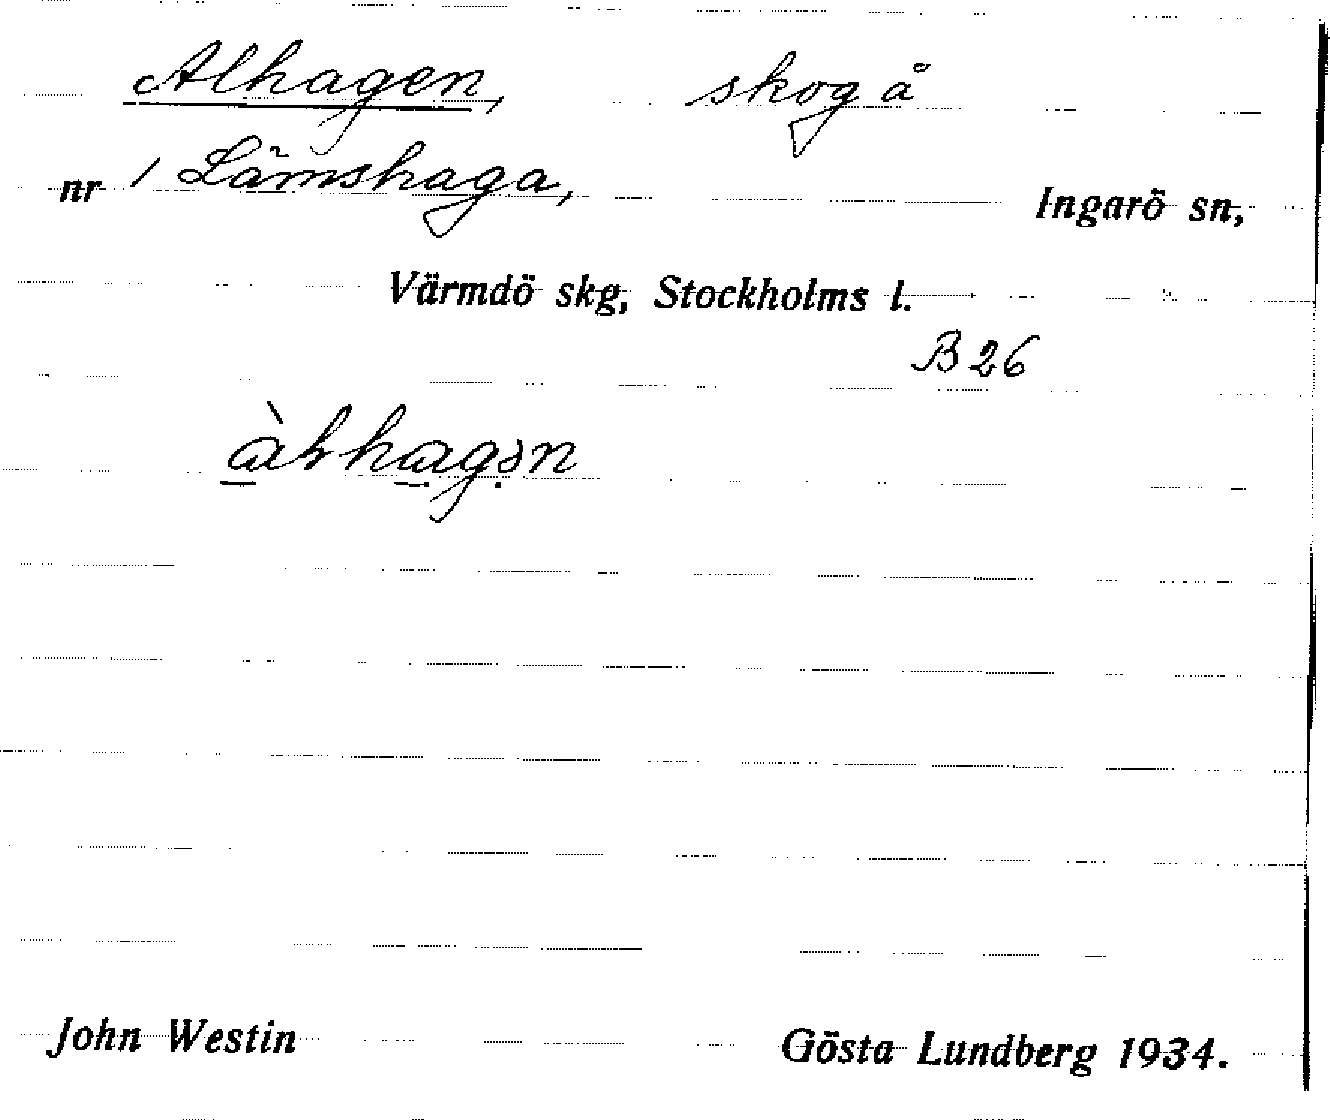 Alhagen, skog å
nr 1 Lämshaga, Ingarö sn,
Värmdö skg, Stockholms l.
B 26
John Westin Gösta Lundberg 1934.